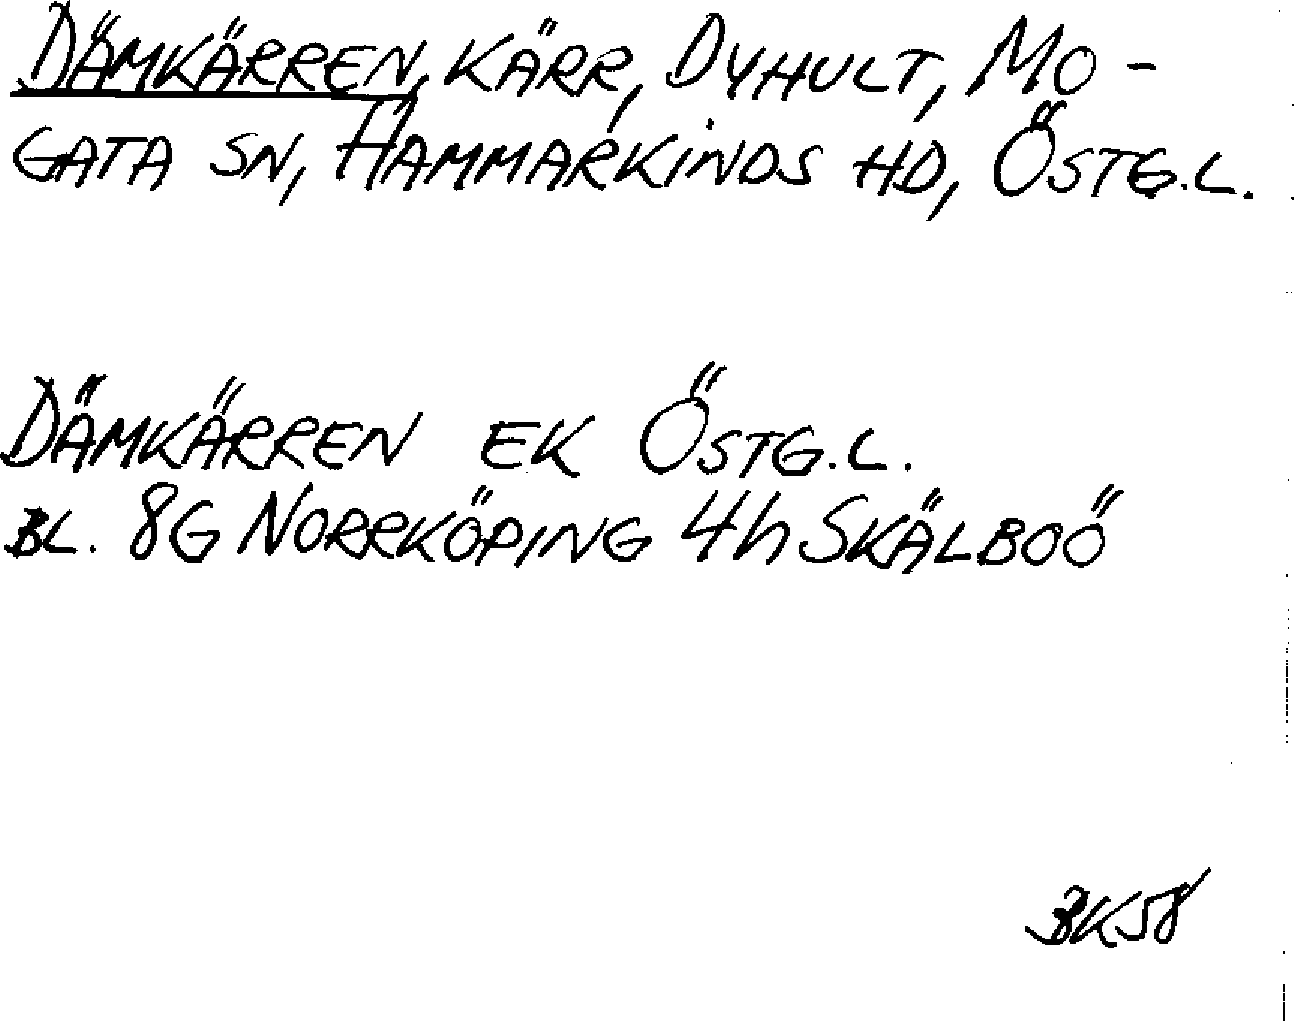 DÄMKÄRREN, KÄRR, DYHULT, MO-
GATA SN, HAMMARKINDS HD, ÖSTG.L.
DÄMKÄRREN EK ÖSTG.L.
BL. 8G NORRKÖPING 4h SKÄLBOÖ
BK58